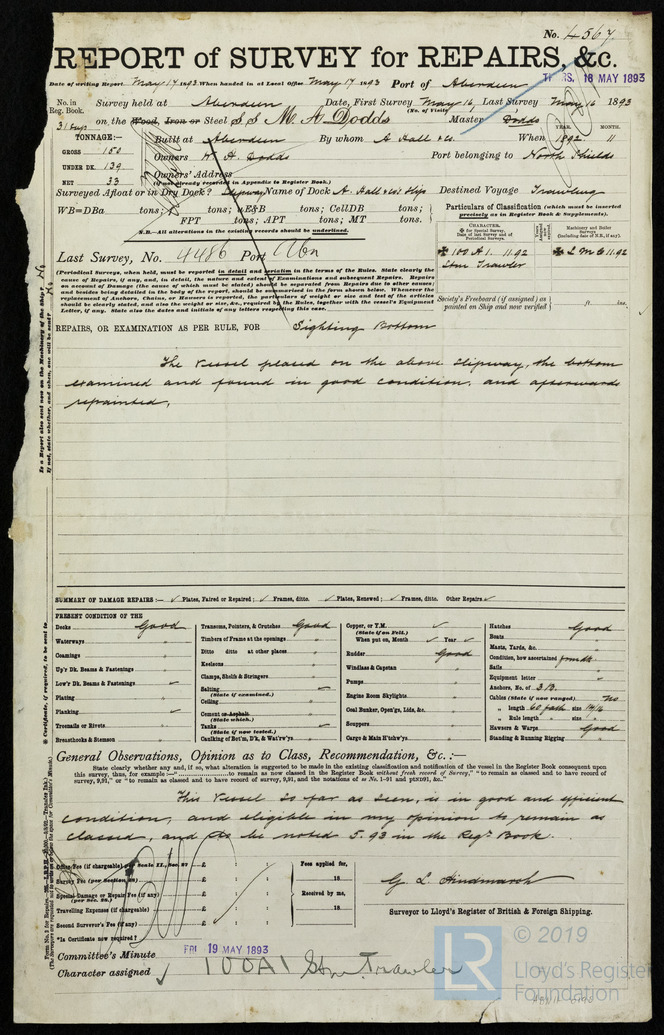 No. 4567
REPORT of SURVEY for REPAIRS, &c.
Date of writing Report May 17 1893 When handed in at Local Office May 17 1893 Port of Aberdeen
THURS. 18 MAY 1893
No. in Reg. Book. Survey held at Aberdeen Date, First Survey May 16, Last Survey May 16 1893
(No. of Visits)
31 Sup on the Wood, Iron or Steel S S M. A. Dodds Master Dodds
TONNAGE:— Built at Aberdeen By whom A Hall & Co. When 1892 11
YEAR. MONTH.
GROSS 150 Owners H. Dodds Port belonging to North Shields
UNDER DK. 139 Owners' Address
NET 33 (if not already recorded in Appendix to Register Book.)
Surveyed Afloat or in Dry Dock? Slipway Name of Dock A. Hall & Co's Slip Destined Voyage Trawling
WB=DBa tons; uE&B tons; CellDB tons;
FPT tons; APT tons; MT tons.
N.B.—All alterations in the existing records should be underlined.
Particulars of Classification (which must be inserted precisely as in Register Book & Supplements).
CHARACTER. for Special Survey. Date of last Survey and of Periodical Surveys.
Machinery and Boiler Surveys (including date of N.B., if any).
✠ 100 A 1. 11.92 ✠ L M C 11.92
Stm Trawler
Last Survey, No. 4486 Port Abn
(Periodical Surveys, when held, must be reported in detail and seriatim in the terms of the Rules. State clearly the
cause of Repairs, if any, and, in detail, the nature and extent of Examinations and subsequent Repairs. Repairs
on account of Damage (the cause of which must be stated) should be separated from Repairs due to other causes;
and besides being detailed in the body of the report, should be summarised in the form shown below. Whenever the
replacement of Anchors, Chains, or Hawsers, is reported, the particulars of weight or size and test of the articles
should be clearly stated, and also the weight or size, &c., required by the Rules, together with the vessel's Equipment
Letter, if any. State also the dates and initials of any letters respecting this case.
Society's Freeboard (if assigned) as painted on Ship and now verified ft. ins.
REPAIRS, OR EXAMINATION AS PER RULE, FOR Sighting Bottom
The Vessel placed on the above Slipway, the bottom
examined and found in good condition, and afterwards
repainted.
SUMMARY OF DAMAGE REPAIRS:— Plates, Faired or Repaired; Frames, ditto. Plates, Renewed; Frames, ditto. Other Repairs
PRESENT CONDITION OF THE
Decks Good
Waterways
Coamings
Up'r Dk. Beams & Fastenings
Low'r Dk. Beams & Fastenings
Plating
Planking
Treenails or Rivets
Breasthooks & Stemson
Transoms, Pointers, & Crutches Good
Timbers of Frame at the openings
Ditto ditto at other places
Keelsons
Clamps, Shelfs & Stringers
Salting (State if examined.)
Ceiling
Cement or Asphalt (State which.)
Tanks (State if now tested.)
Caulking of Bot'm, D'k, & Wat'rw'ys
Copper, or Y.M. (State if on Felt.)
When put on, Month Year
Rudder Good
Windlass & Capstan
Pumps
Engine Room Skylights
Coal Bunker, Open'gs, Lids, &c.
Scuppers
Cargo & Main H'tchw'ys
Hatches Good
Boats
Masts, Yards, &c.
Condition, how ascertained from dk
Sails
Equipment letter
Anchors, No. of 3 B.
Cables (State if now ranged) No
„ length 60 fath size 14/16
„ Rule length size
Hawsers & Warps Good
Standing & Running Rigging
General Observations, Opinion as to Class, Recommendation, &c.:—
State clearly whether any, and if so, what alteration is suggested to be made in the existing classification and notification of the vessel in the Register Book consequent upon
this survey, thus, for example:—"........................to remain as now classed in the Register Book without fresh record of Survey," "to remain as classed and to have record of
survey, 9,91," or "to remain as classed and to have record of survey, 9,91, and the notations of
This Vessel so far as seen, is in good and efficient
condition, and eligible in my opinion to remain as
classed, and to be noted 5.93 in the Regr. Book.
Office Fee (if chargeable) per Scale II., Sec. 27 £ : :
Survey Fee (per Section 28) £ : :
Special Damage or Repair Fee (if any) (per Sec. 28.) £ : :
Travelling Expenses (if chargeable) £ : :
Second Surveyor's Fee (if any) £ : :
Fees applied for, 18
Received by me, 18
G. L. Hindmarsh
Surveyor to Lloyd's Register of British & Foreign Shipping.
*Is Certificate now required?
Committee's Minute FRI 19 MAY 1893
Character assigned 100A1 Stm Trawler
LR © 2019
Lloyd's Register
Foundation